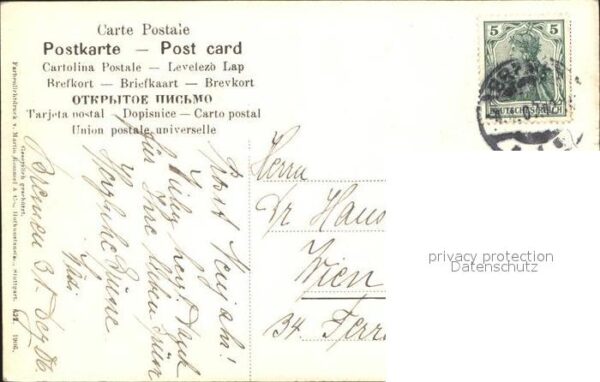 Carte Postale
Postkarte — Post card
Cartolina Postale — Levelező Lap
Brefkort — Briefkaart — Brevkort
ОТКРЫТОЕ ПИСЬМО
Tarjeta postal — Dopisnice — Carto postal
Union postale universelle
5 5
DEUTSCHES REICH
Farbenlichtdruck v. Martin Rommel & Co., Hofkunstanst., Stuttgart. 1906.
Gesetzlich geschützt.
Prosit Neujahr!
für Ihre lieben
Herzliche Grüsse
Bremen 31. Dez. 06.
Herrn
Dr Haus
Wien
34. Ferr
privacy protection
Datenschutz